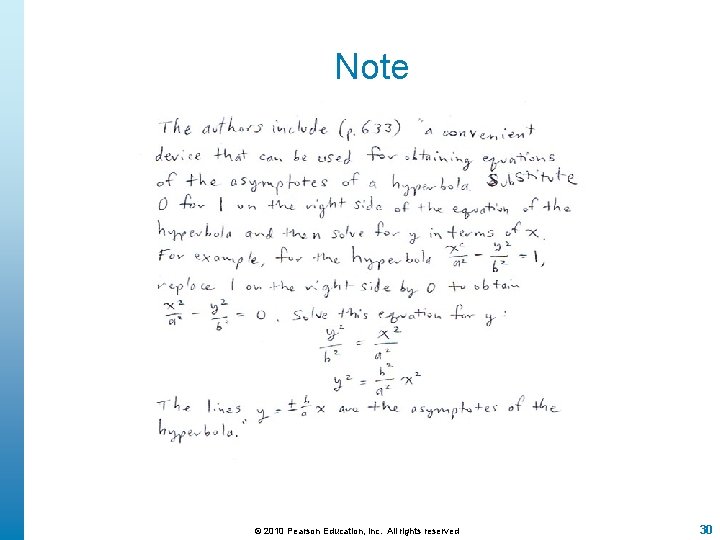 Note
The authors include (p. 633) "a convenient
device that can be used for obtaining equations
of the asymptotes of a hyperbola Substitute
0 for 1 on the right side of the equation of the
hyperbola and then solve for y in terms of x.
For example, for the hyperbola x²/a² - y²/b² = 1,
replace 1 on the right side by 0 to obtain
x²/a² - y²/b² = 0. Solve this equation for y:
y²/b² = x²/a²
y² = b²/a² x²
The lines y = ± b/a x are the asymptotes of the
hyperbola."
© 2010 Pearson Education, Inc. All rights reserved
30